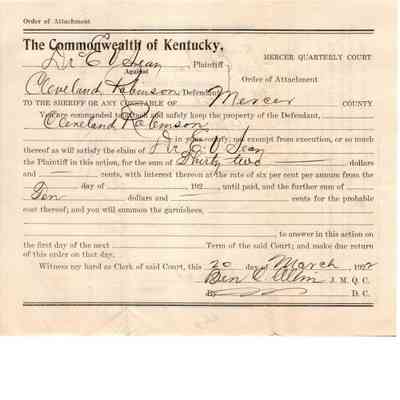 Order of Attachment
The Commonwealth of Kentucky,
Dr E V Jean, Plaintiff
MERCER QUARTERLY COURT
Against
Order of Attachment
Cleveland Robinson Defendant
TO THE SHERIFF OR ANY CONSTABLE OF Mercer COUNTY
You are commanded to attach and safely keep the property of the Defendant,
Cleveland Robinson
in your county, not exempt from execution, or so much
thereof as will satisfy the claim of Dr E V Jean
the Plaintiff in this action, for the sum of Thirty two dollars
and cents, with interest thereon at the rate of six per cent per annum from the
day of , 192 , until paid, and the further sum of
Ten dollars and cents for the probable
cost thereof; and you will summon the garnishees,
to answer in this action on
the first day of the next Term of the said Court; and make due return
of this order on that day.
Witness my hand as Clerk of said Court, this 20 day of March , 1922
Ben C J. M. Q. C.
By D. C.